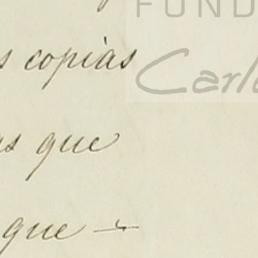 FUND
s copias
Carlo
s que
que